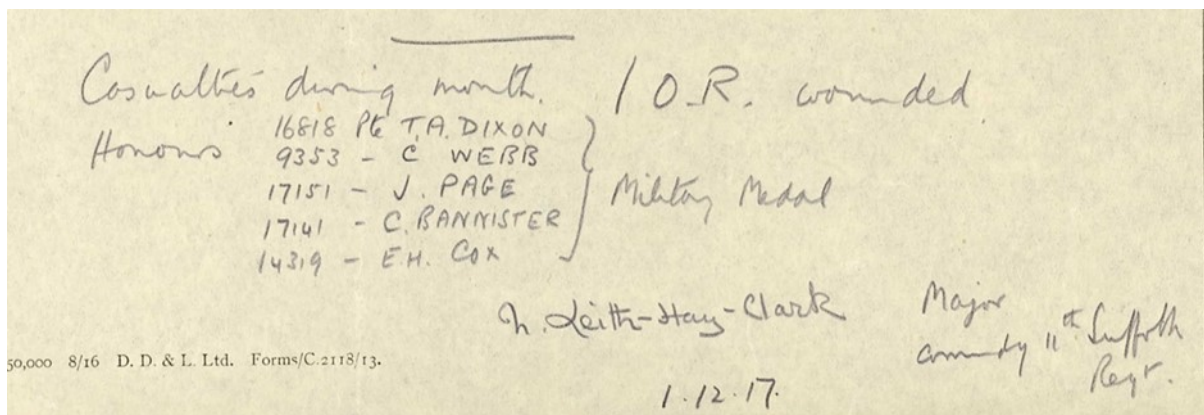 Casualties during month. 1 O.R. wounded
Honours 16818 Pte T.A. DIXON
9353 - C WEBB
17151 - J. PAGE
17141 - C. BANNISTER
14319 - E.H. COX
Military Medal
N. Leith-Hay-Clark Major
Commdg 11th Suffolk
Regt.
50,000 8/16 D. D. & L. Ltd. Forms/C.2118/13.
1.12.17.